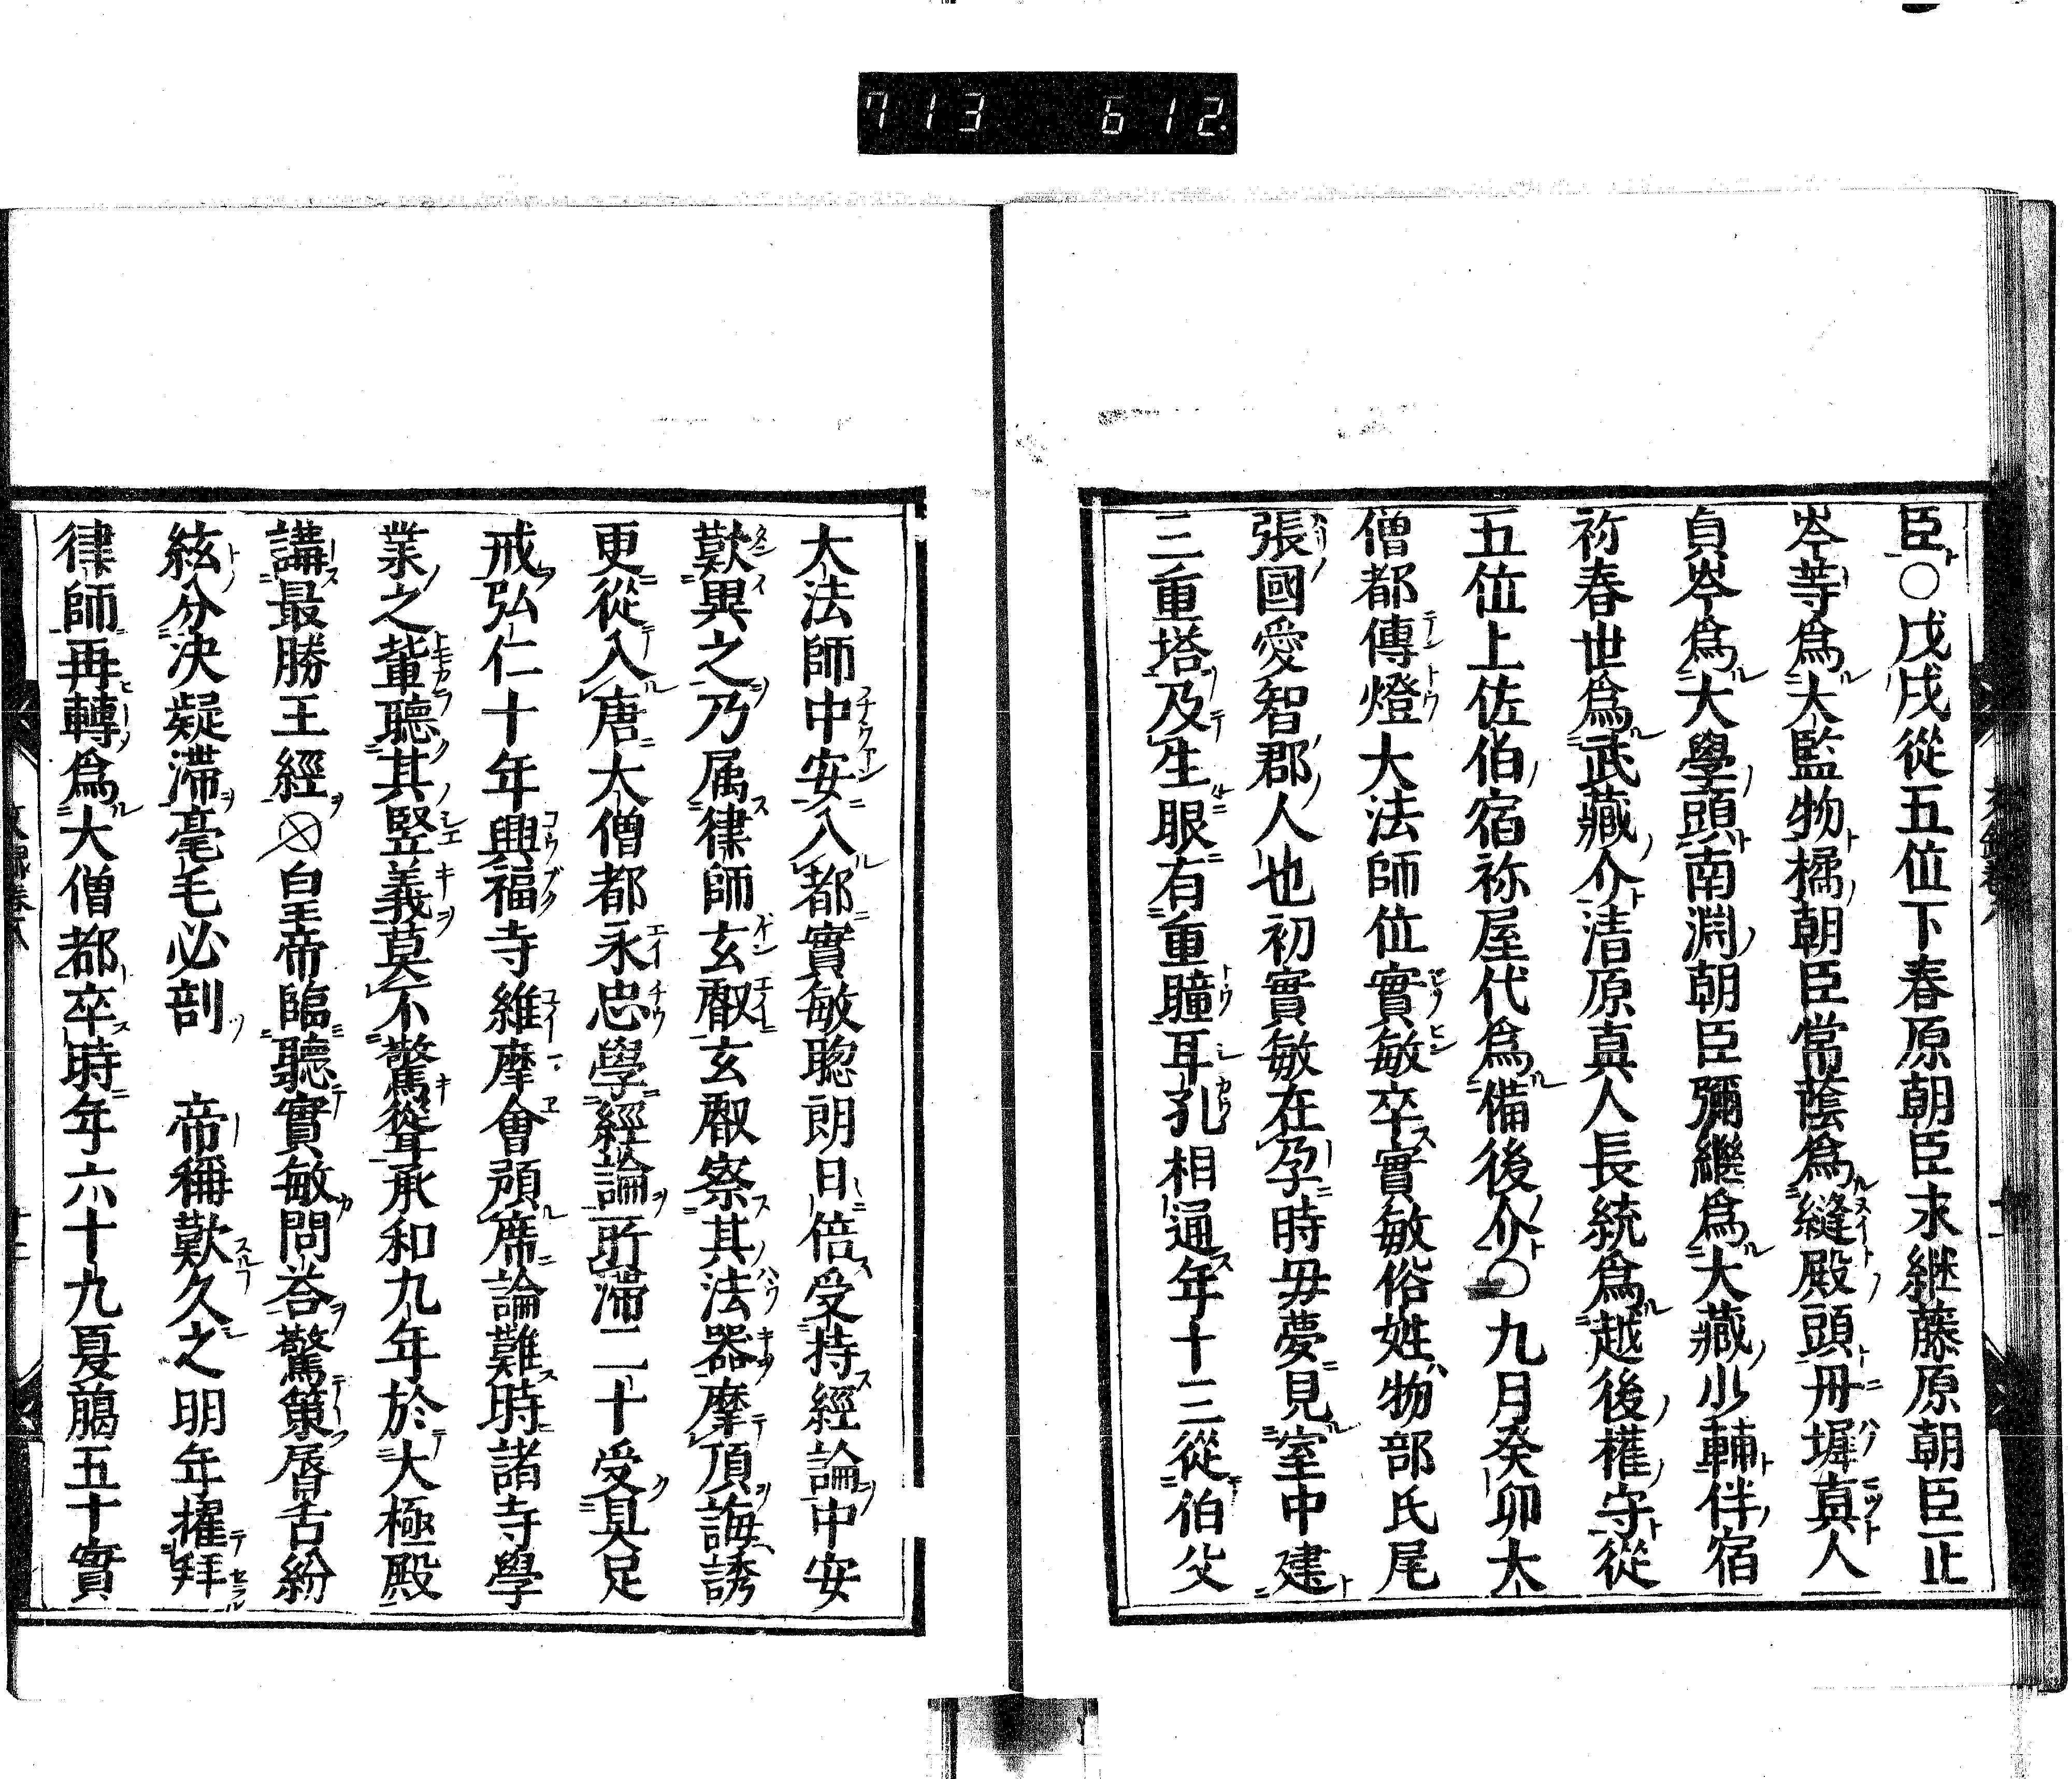 713 612.
臣○戊戌從五位下春原朝臣永継藤原朝臣正
岑等爲大監物橘朝臣常蔭爲縫殿頭丹墀真人
貞岑爲大學頭南淵朝臣彌繼爲大藏少輔伴宿
祢春世爲武藏介清原真人長統爲越後權守從
五位上佐伯宿祢屋代爲備後介○九月癸卯大
僧都傳燈大法師位實敏卒實敏俗姓物部氏尾
張國愛智郡人也初實敏在孕時母夢見室中建
三重塔及生眼有重瞳耳孔相通年十三從伯父
大法師中安入都實敏聡朗日倍受持經論中安
歎異之乃属律師玄叡玄叡察其法器摩頂誨誘
更從入唐大僧都永忠學經論所滞二十受具足
戒弘仁十年興福寺維摩會預席論難時諸寺學
業之輩聽其竪義莫不驚聳承和九年於大極殿
講最勝王經 皇帝臨聽實敏問荅驚策脣舌紛
紜分決疑滞毫毛必剖 帝稱歎久之明年擢拜
律師再轉爲大僧都卒時年六十九夏﨟五十實